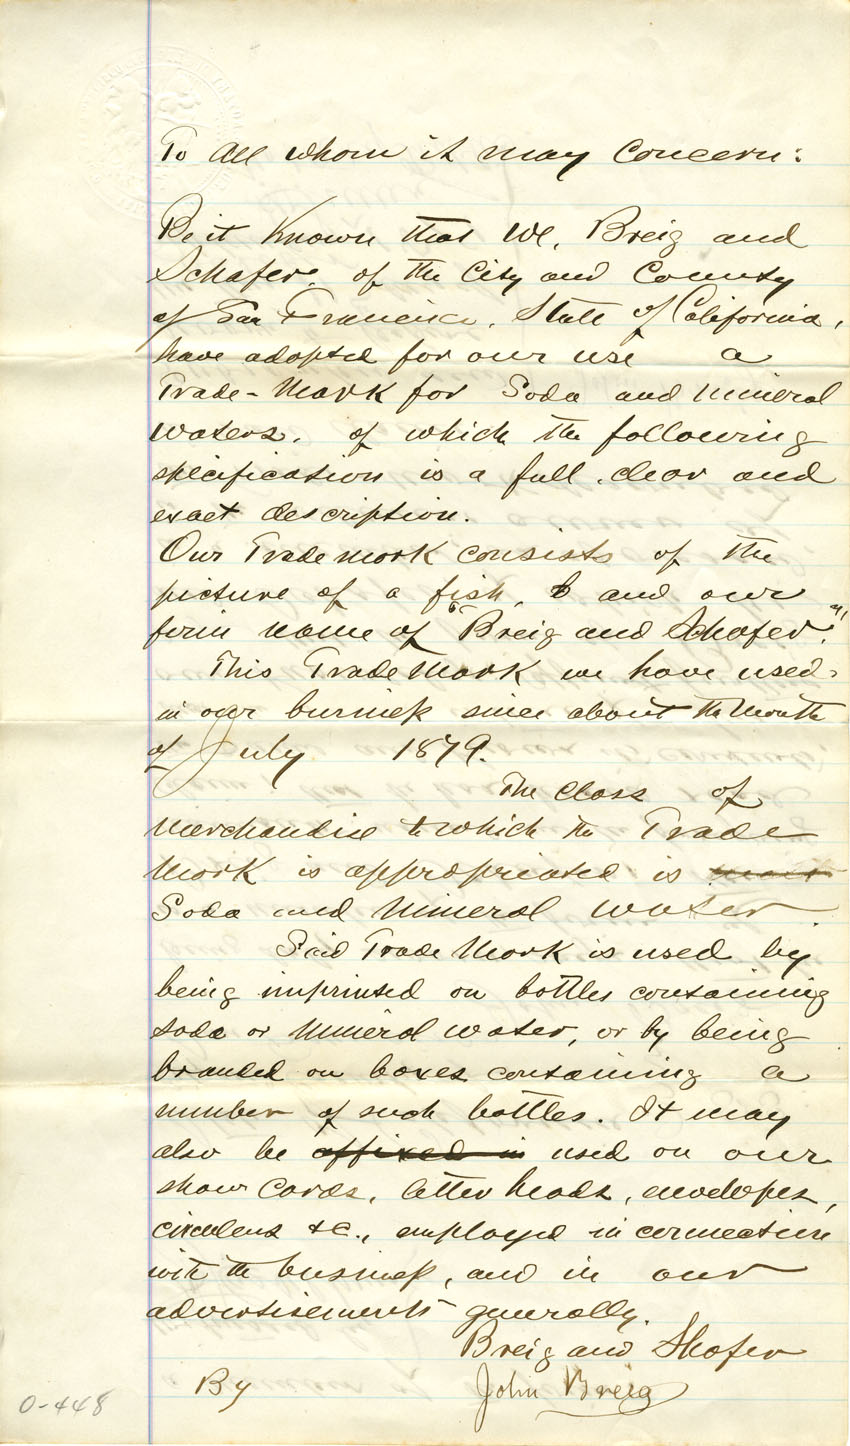 To All whom it may Concern:
Be it Known that We, Breig and
Schafer, of the City and County
of San Francisco, State of California,
have adopted for our use a
Trade-Mark for Soda and Mineral
Waters, of which the following
specification is a full, clear and
exact description.
Our Trade mark consists of the
picture of a fish, & and our
firm name of "Breig and Schafer."
This Trade Mark we have used
in our business since about the Month
of July 1879.
The Class of
Merchandise to which the Trade
Mark is appropriated is
Soda and Mineral Water
Said Trade Mark is used by
being imprinted on bottles containing
Soda or Mineral water, or by being
branded on boxes containing a
number of such bottles. It may
also be affixed in used on our
show Cards, letter heads, envelopes,
circulars &c., employed in connection
with the business, and in our
advertisements generally.
Breig and Shafer
By John Breig
0-448